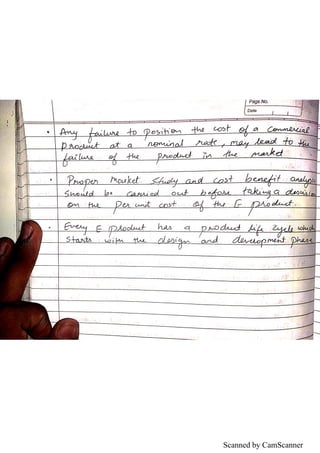 Page No.
Date
• Any failure to position the cost of a commercial
Product at a nominal rate, may lead to the
failure of the product in the market.
• Proper Market study and cost benefit analys
should be carried out before taking a decision
on the per unit cost of the E product.
• Every E product has a product life cycle which
starts with the design and development phase
Scanned by CamScanner